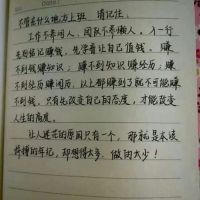 Date:
不管在什么地方上班 请记住:
工作不养闲人,团队不养懒人,入一行
先别惦记赚钱,先学着让自己值钱。赚
不到钱赚知识; 赚不到知识赚经历; 赚
不到经历赚阅历,以上都赚到了就不可能赚
不到钱。只有先改变自己的态度,才能改变
人生的高度。
让人迷茫的原因只有一个,那就是本该
拼搏的年纪,却想得太多,做的太少!